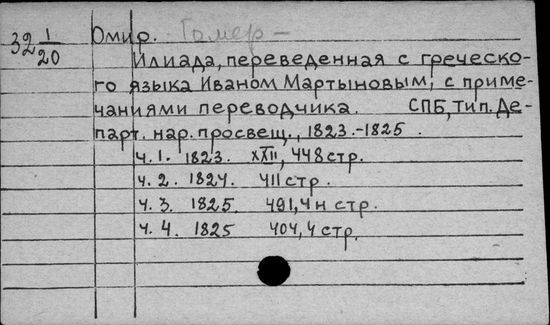 32 1/20 Омир. Гомер –
Илиада, переведенная с греческо-
го языка Иваном Мартыновым, с приме-
чаниями переводчика. СПБ, тип. Де-
парт. нар. просвещ., 1823.-1825.
ч. 1. 1823. XXII, 448 стр.
ч. 2. 1824. 411 стр.
ч. 3. 1825. 491, 4 н стр.
ч. 4. 1825 404, 4 стр.